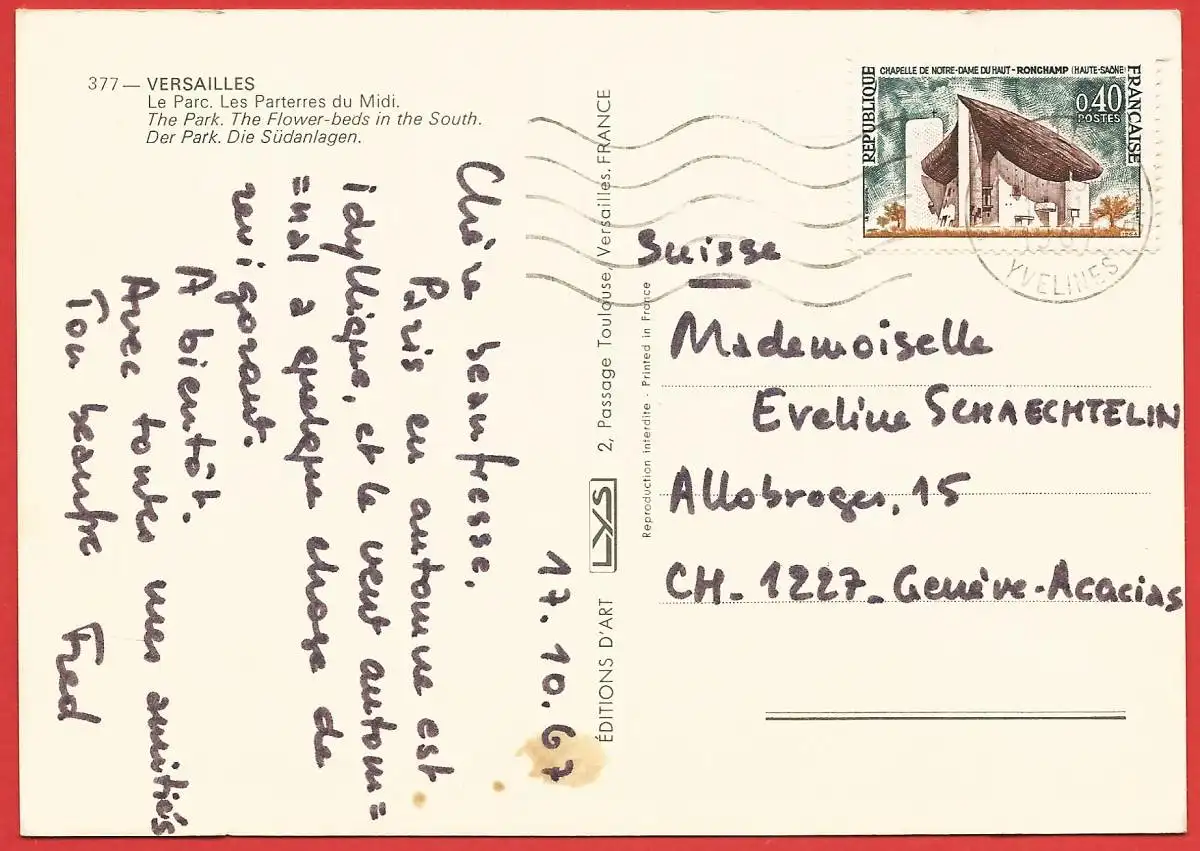 377 — VERSAILLES
Le Parc. Les Parterres du Midi.
The Park. The Flower-beds in the South.
Der Park. Die Südanlagen.
17.10.67
Chère beaufresse,
Paris en automne est
idyllique, et le vent autom=
=nal a quelque chose de
revigorant.
A bientôt.
Avec toutes mes amitiés
Ton beaufre Fred
ÉDITIONS D'ART LYS 2, Passage Toulouse, Versailles. FRANCE
Reproduction interdite - Printed in France
CHAPELLE DE NOTRE-DAME DU HAUT - RONCHAMP (HAUTE-SAÔNE)
RÉPUBLIQUE
FRANÇAISE
0,40
POSTES
YVELINES
Suisse
Mademoiselle
Eveline SCHAECHTELIN
Allobroges, 15
CH-1227-Genève-Acacias